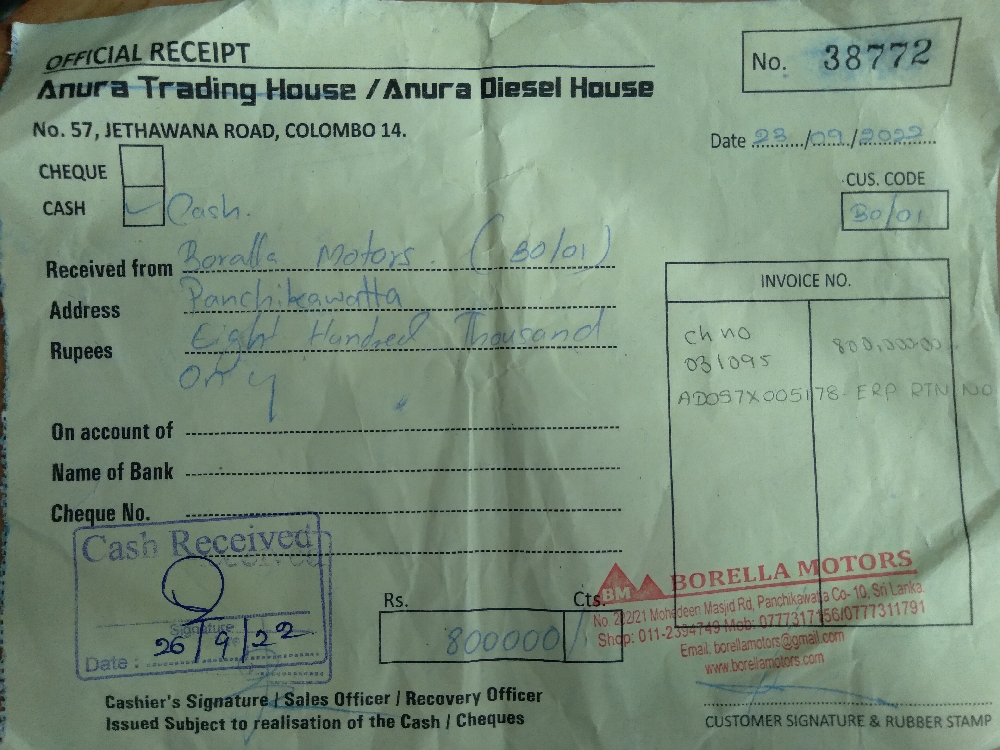 OFFICIAL RECEIPT
No. 38772
Anura Trading House / Anura Diesel House
No. 57, JETHAWANA ROAD, COLOMBO 14.
Date 23/09/2022
CHEQUE
CUS. CODE
CASH Cash.
BO/01
Received from Boralla Motors. (BO/01)
Address Panchikawatta
Rupees Eight Hundred Thousand
only
INVOICE NO.
ch no 800,000.00
031095
AD097X005178 - ERP RTN NO
On account of
Name of Bank
Cheque No.
Cash Received
Signature
26/9/22
Date :
Rs. Cts.
800000/
BM BORELLA MOTORS
No. 212/21 Mohedeen Masjid Rd, Panchikawatta Co- 10, Sri Lanka.
Shop: 011-2394749 Mob: 0777317156/0777311791
Email: borellamotors@gmail.com
www.borellamotors.com
Cashier's Signature / Sales Officer / Recovery Officer
Issued Subject to realisation of the Cash / Cheques
CUSTOMER SIGNATURE & RUBBER STAMP